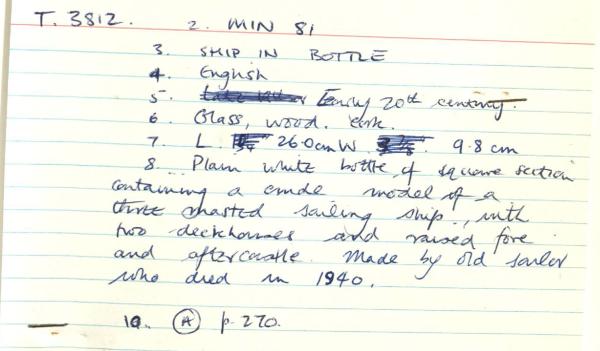 T. 3812. 2. MIN 81
3. SHIP IN BOTTLE
4. English
5. Early 20th century.
6. Glass, wood. cork.
7. L. 26.0cm W. 9.8 cm
8. Plain white bottle of square section
containing a crude model of a
three masted sailing ship, with
two deckhouses and raised fore
and aftercastle. Made by old sailor
who died in 1940.
10. A p. 270.